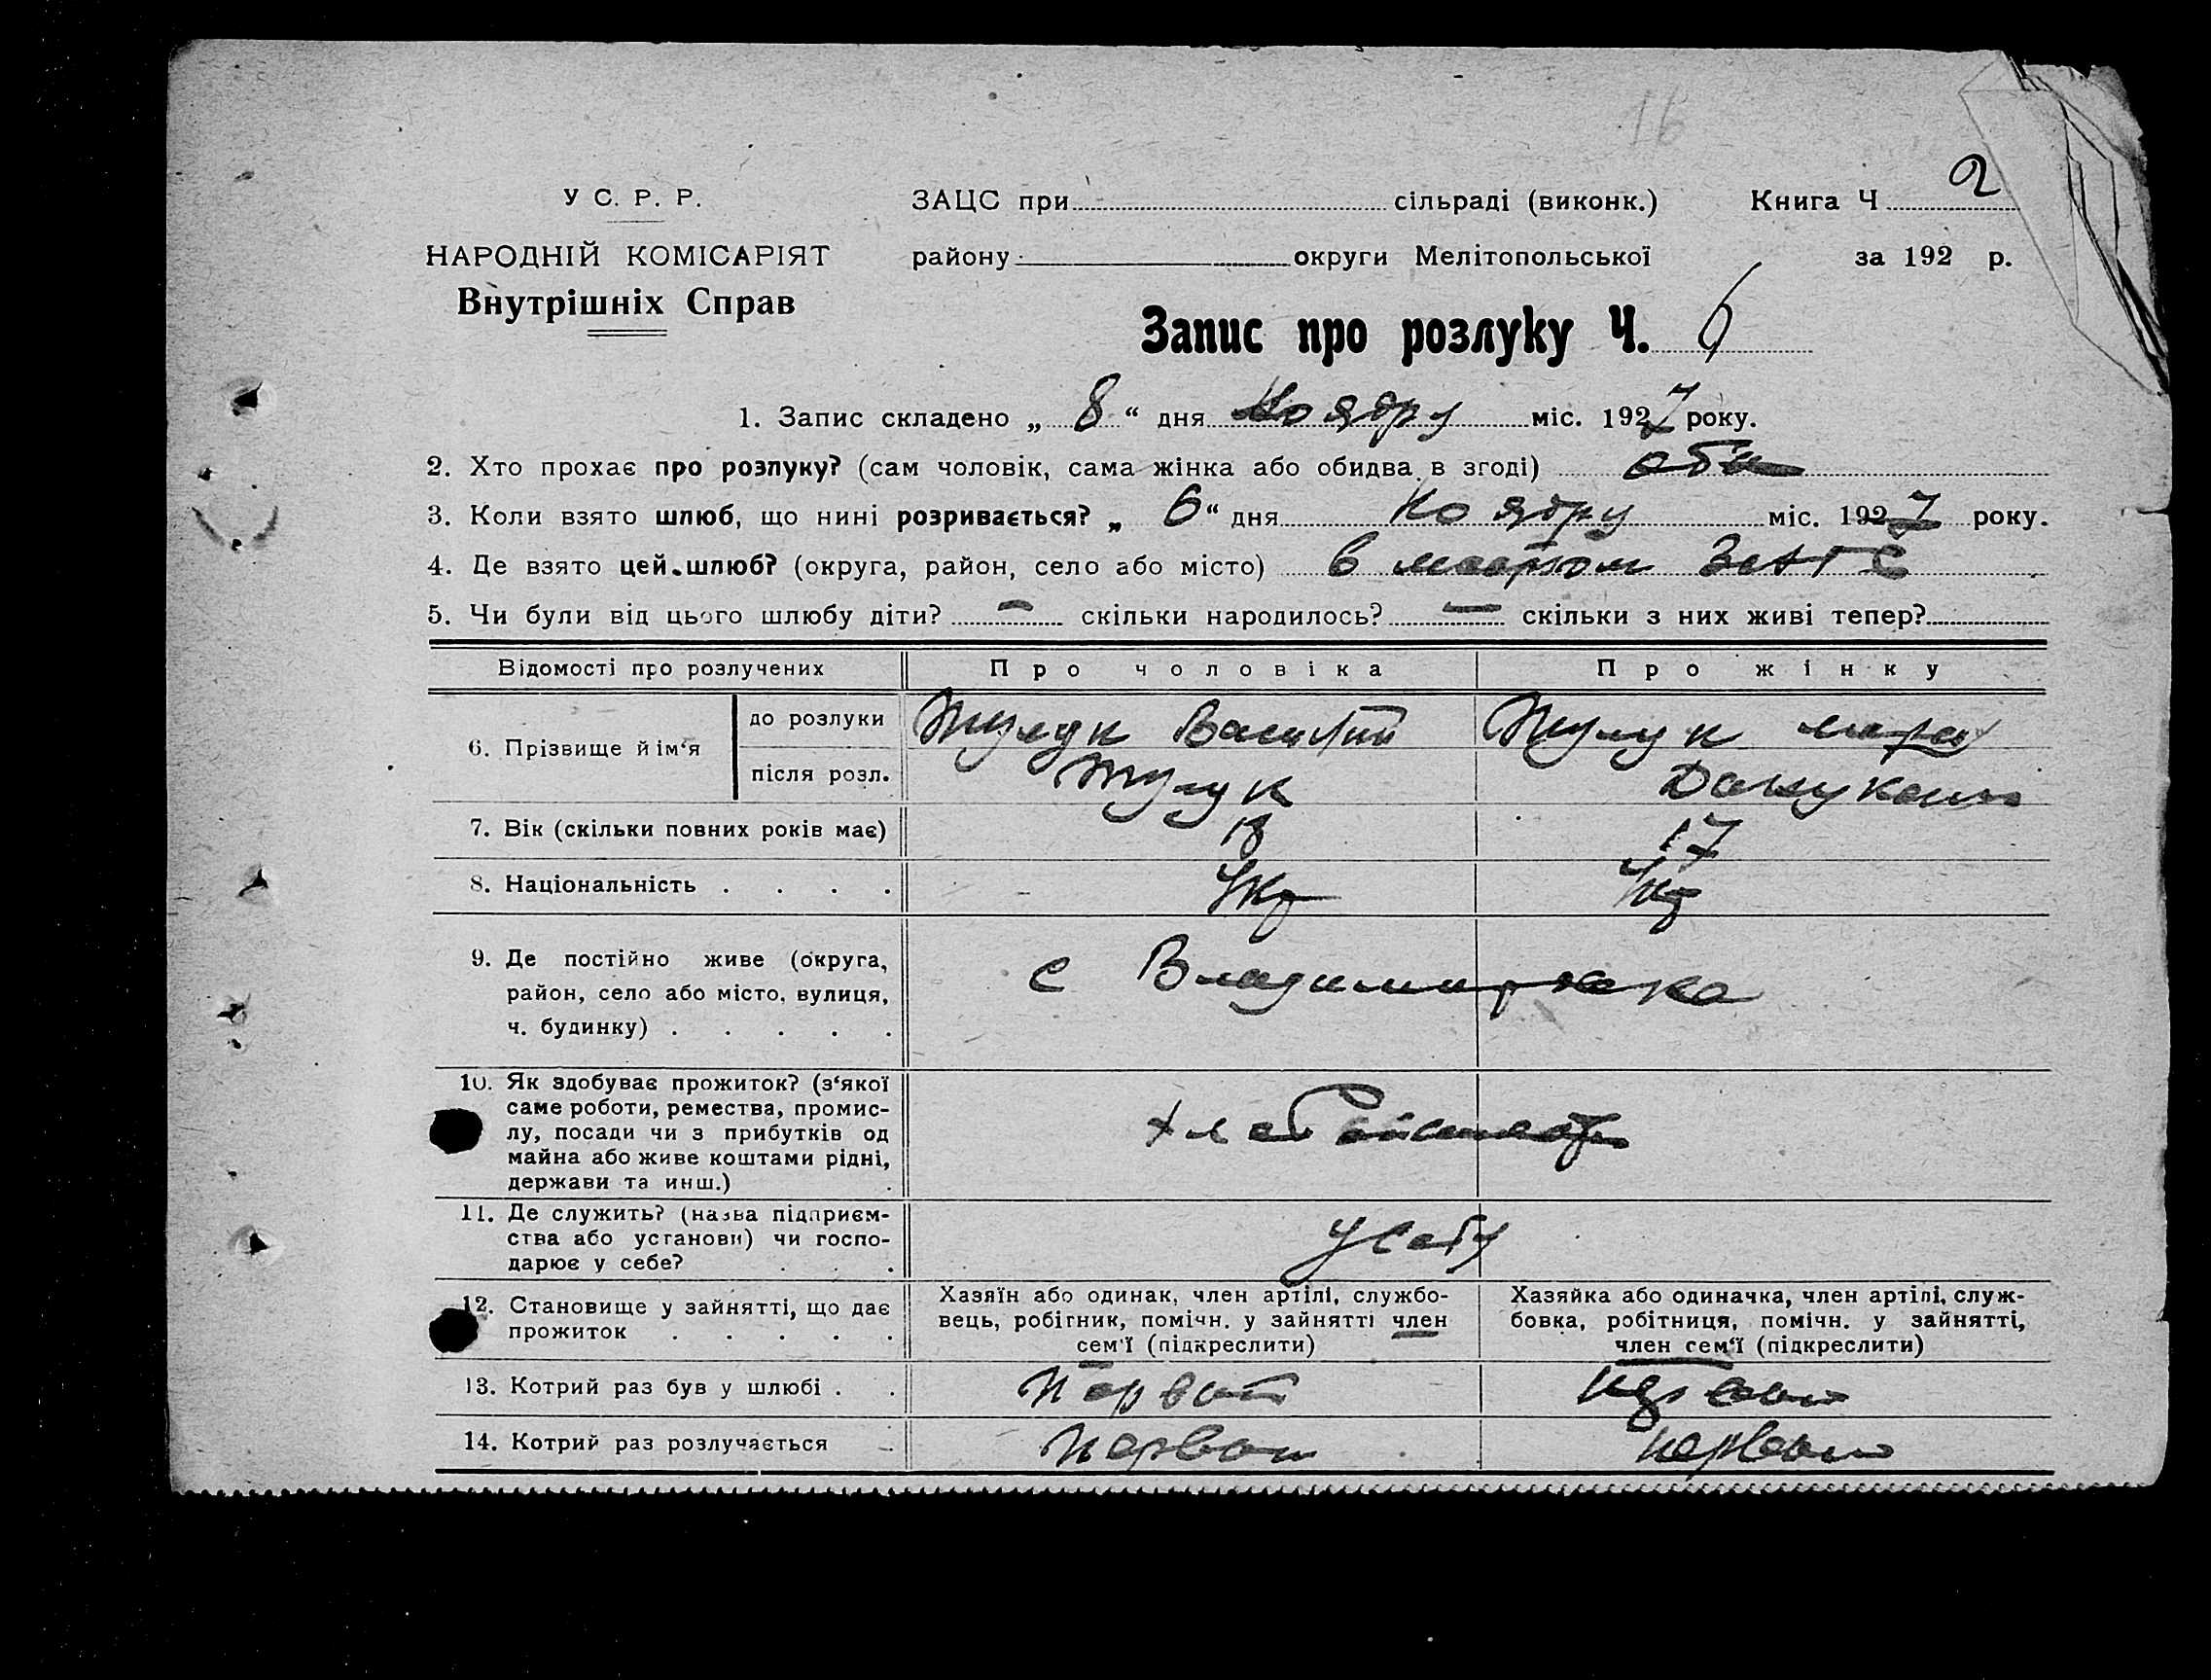 16
У С. Р. Р.
ЗАЦС при сільраді (виконк.) Книга Ч 2
НАРОДНІЙ КОМІСАРІЯТ
району округи Мелітопольської за 192 р.
Внутрішніх Справ
Запис про розлуку Ч. 6
1. Запис складено „ 8 “ дня Ноябру міс. 1927 року.
2. Хто прохає про розлуку? (сам чоловік, сама жінка або обидва в згоді) оба
3. Коли взято шлюб, що нині розривається? „ 6 “ дня Ноябру міс. 1927 року.
4. Де взято цей шлюб? (округа, район, село або місто) в ЗАГС
5. Чи були від цього шлюбу діти? — скільки народилось? — скільки з них живі тепер?
Відомості про розлучених Про чоловіка Про жінку
6. Прізвище й ім‘я
до розлуки Василий
після розл.
7. Вік (скільки повних років має) 18 17
8. Національність . . . . Укр Укр
9. Де постійно живе (округа,
район, село або місто, вулиця,
ч. будинку) . . . . .
с Владимировка
10. Як здобуває прожиток? (з‘якої
саме роботи, ремества, промис-
лу, посади чи з прибутків од
майна або живе коштами рідні,
держави та инш.) .
11. Де служить? (назва підприєм-
ства або установи) чи госпо-
дарює у себе? . . .
у себу
12. Становище у зайнятті, що дає
прожиток . . . . .
Хазяїн або одинак, член артілі, службо-
вець, робітник, помічн. у зайнятті член
сем‘ї (підкреслити)
Хазяйка або одиначка, член артілі, служ-
бовка, робітниця, помічн. у зайнятті,
член сем‘ї (підкреслити)
13. Котрий раз був у шлюбі . . Первой
14. Котрий раз розлучається Первой первой